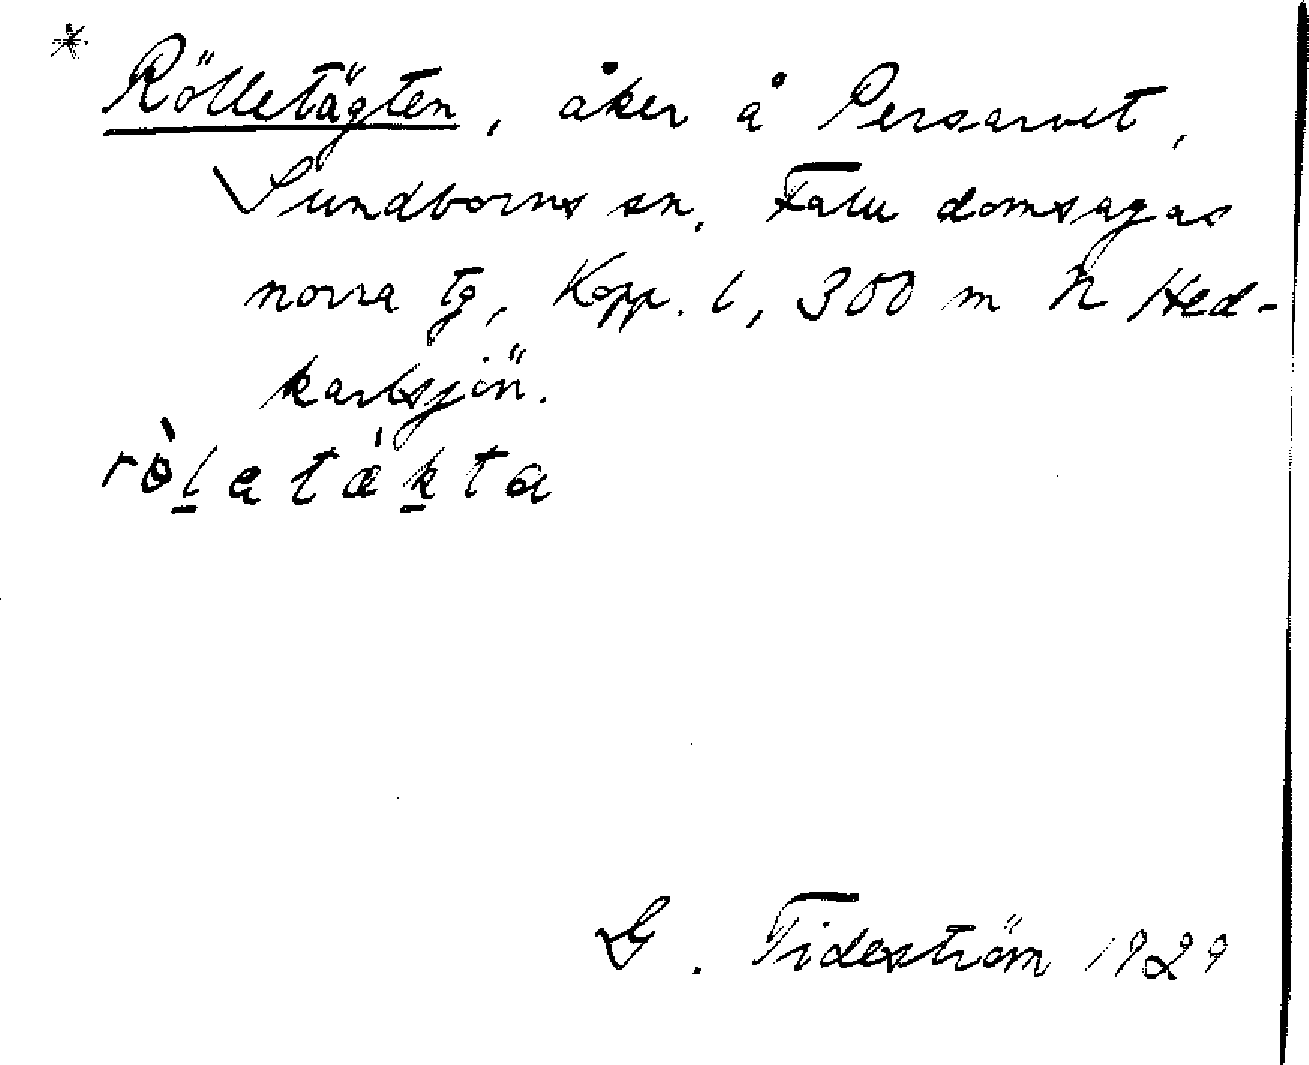 * Rölletägten, åker å Persarvet,
Sundborns sn, Falu domsagas
norra tg, Kopp. l, 300 m N Hed-
karlsjön.
rø̀l̠atǽk̠ta
G. Tideström 1929